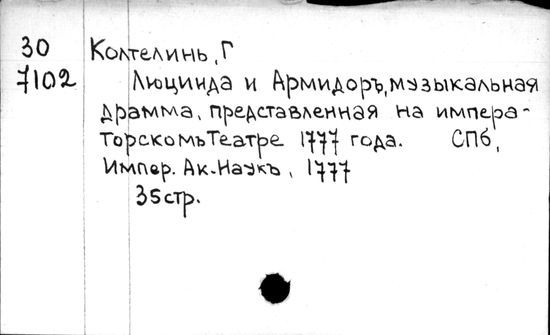 30 Колтелинь, Г
7102 Люцинда и Армидоръ, музыкальная
драмма, представленная на импера-
торскомъ театре 1777 года. СПб,
Импер. Ак. Наукъ, 1777
35 стр.